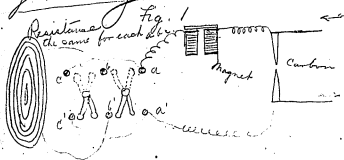 Fig. 1
Resistance
the same for each
c b a
Magnet
Carbon
c' b' a'